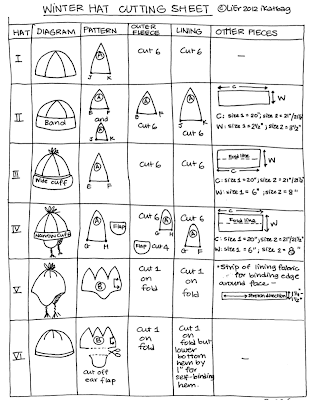 WINTER HAT CUTTING SHEET ©LiEr 2012 ikatbag
HAT DIAGRAM PATTERN OUTER FLEECE LINING OTHER PIECES
I
A
Cut 6
Cut 6
-
II
Band
A
E F
and
A
J K
A
E F
Cut 6
A
J K
Cut 6
C
W
C: size 1 = 20"; size 2 = 21"/21½"
W: size 1 = 2½"; size 2 = 3½"
III
Wide cuff
A
E F
Cut 6
Cut 6
C
Fold line
W
C: size 1 = 20"; size 2 = 21"/21½"
W: size 1 = 6"; size 2 = 8"
IV
Narrow Cuff
A
G H
Flap
Cut 6
Flap Cut 4
Cut 6
C
Fold line
W
C: size 1 = 20"; size 2 = 21"/21½"
W: size 1 = 6"; size 2 = 8"
V
B
Cut 1
on
fold
Cut 1
on
fold
• Strip of lining fabric
for binding edge
around face -
stretch direction
VI
B
cut off
ear flap
Cut 1
on
fold
Cut 1
on
fold but
lower
bottom
hem by
1" for
self-binding
hem.
-